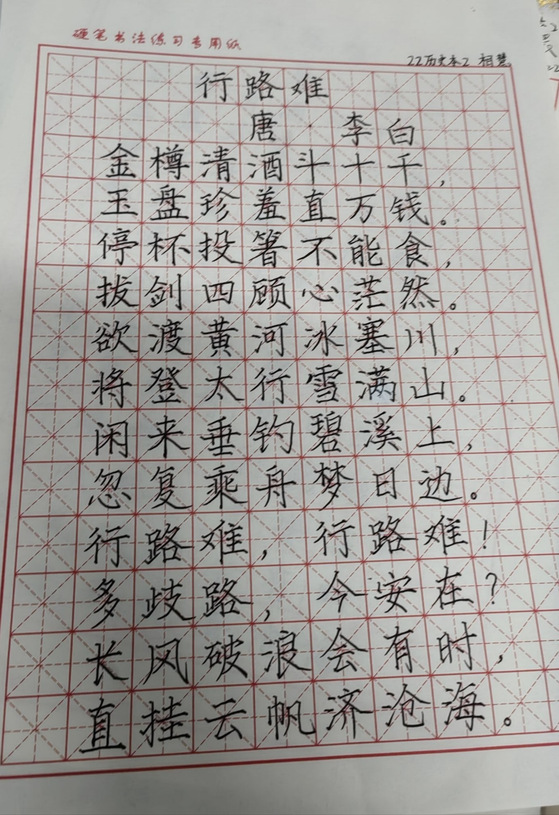 硬笔书法练习专用纸
22历史本2 相慧
行路难
唐·李白
金樽清酒斗十千，
玉盘珍羞直万钱。
停杯投箸不能食，
拔剑四顾心茫然。
欲渡黄河冰塞川，
将登太行雪满山。
闲来垂钓碧溪上，
忽复乘舟梦日边。
行路难，行路难！
多歧路，今安在？
长风破浪会有时，
直挂云帆济沧海。